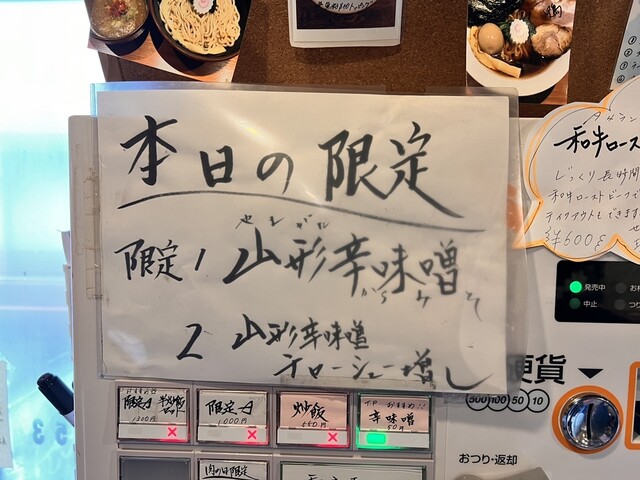 本日の限定
限定1 山形辛味噌
やまがた
からみそ
2 山形辛味噌
チャーシュー増し
和牛ロース
じっくり長時間
和牛ローストビーフで
テイクアウトもできます
半600g
発売中
中止
硬貨
500 100 50 10
おつり・返却
おすすめ
限定 半炒飯
セット
1300円
限定
1000円
炒飯
550円
T.P おすすめ!!
辛味噌
50円
肉の日限定